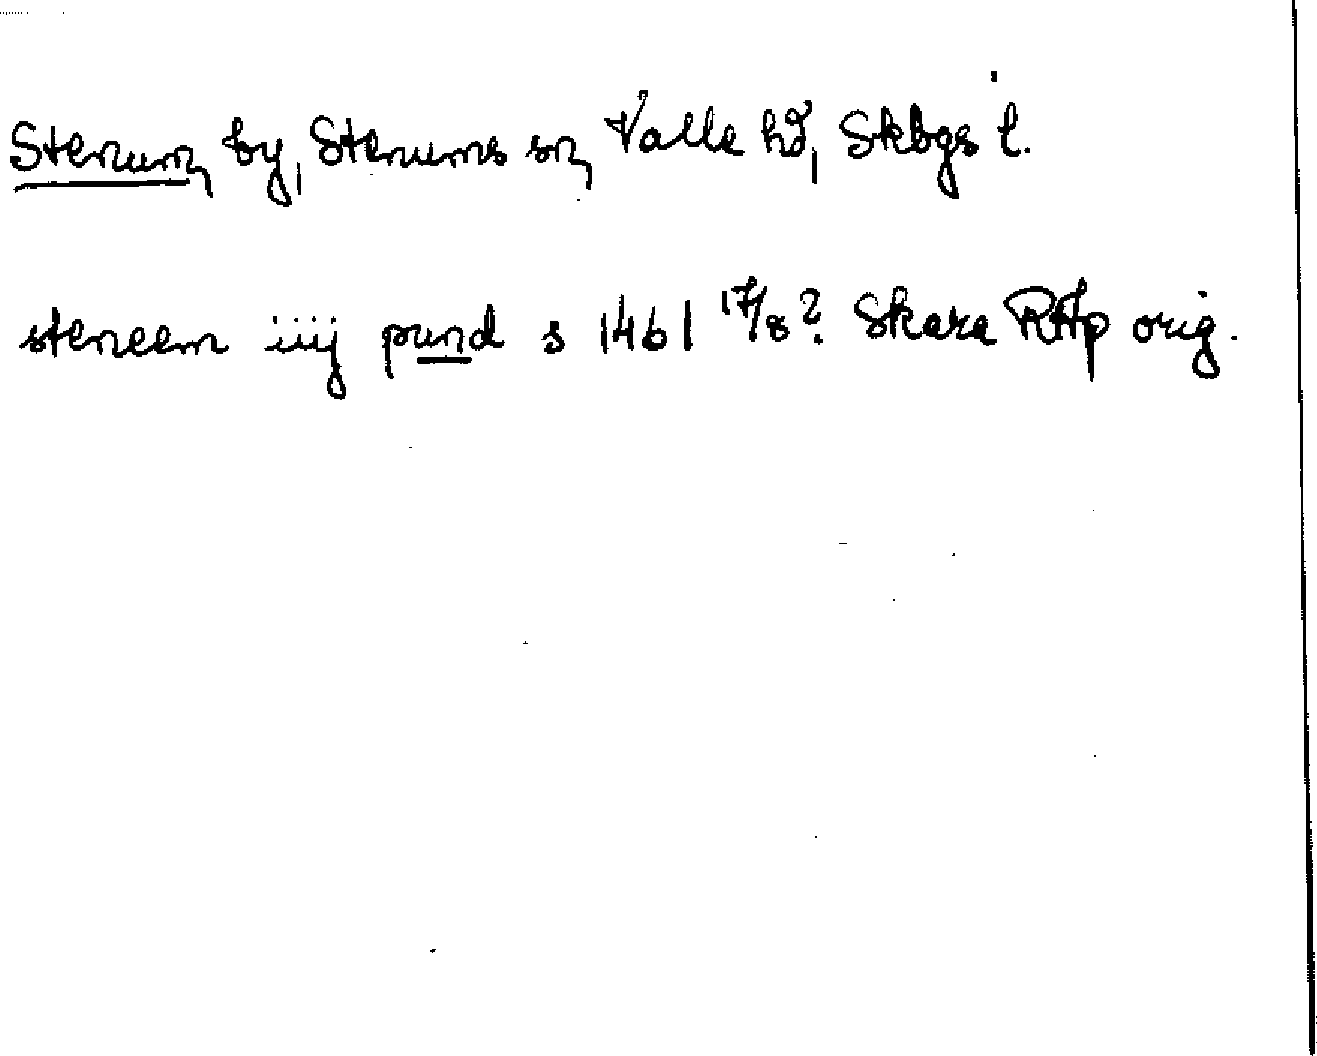 Stenum, by, Stenums sn, Valle hd, Skbgs l.
steneem iiij pund s 1461 17/8? Skara RAp orig.